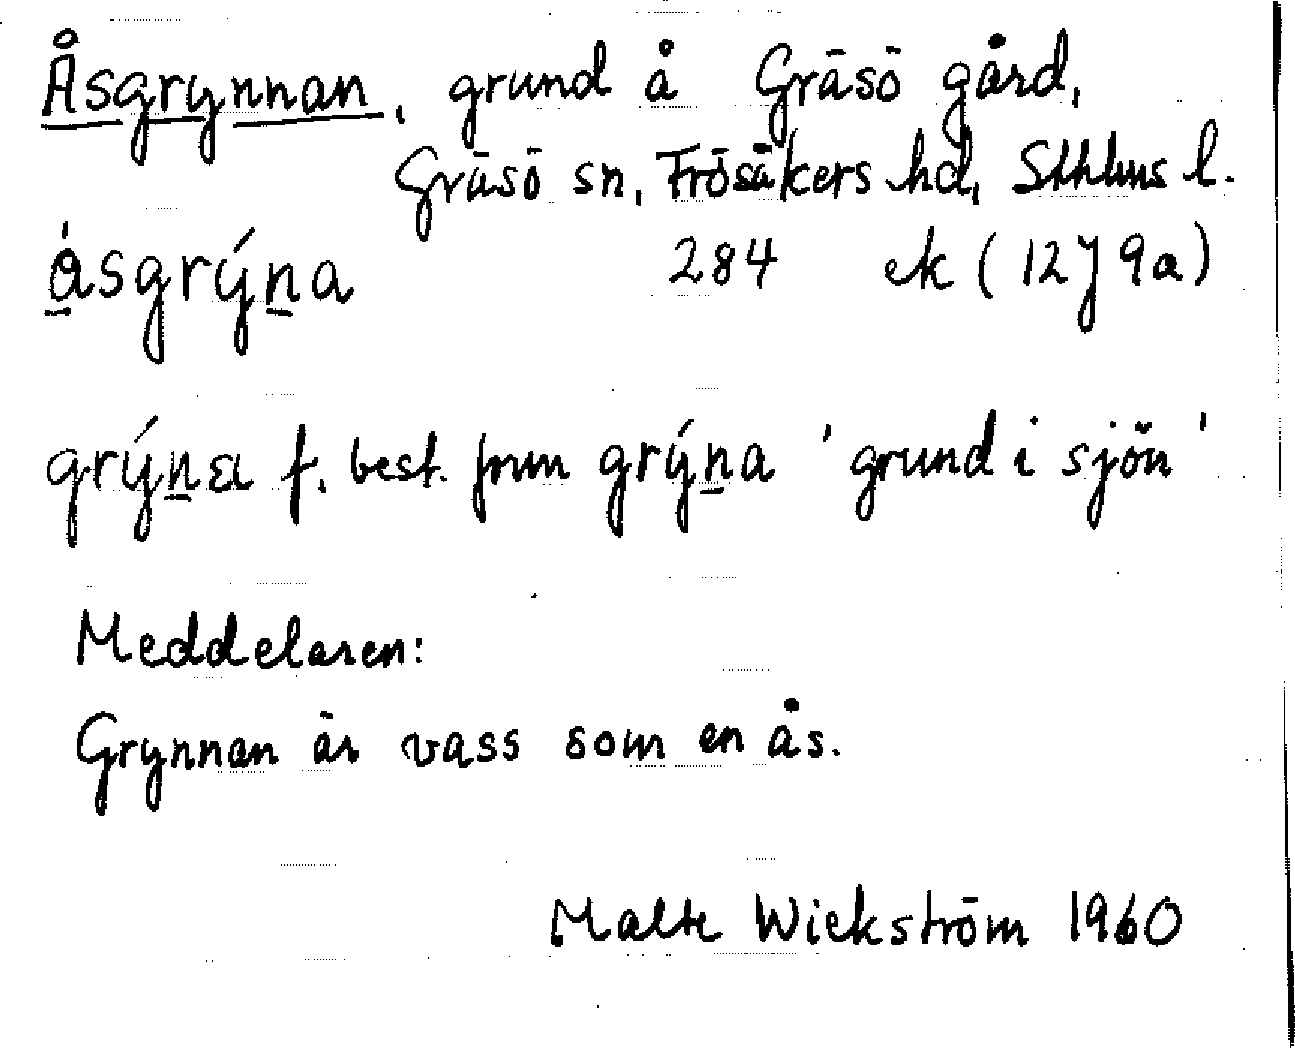 Åsgrynnan, grund å Gräsö gård,
Gräsö sn, Frösåkers hd, Sthlms l.
ásgrýn̲a 284 ek (12J 9a)
grýn̲a f. best. form grýn̲a 'grund i sjön'
Meddelaren:
Grynnan är vass som en ås.
Malte Wickström 1960